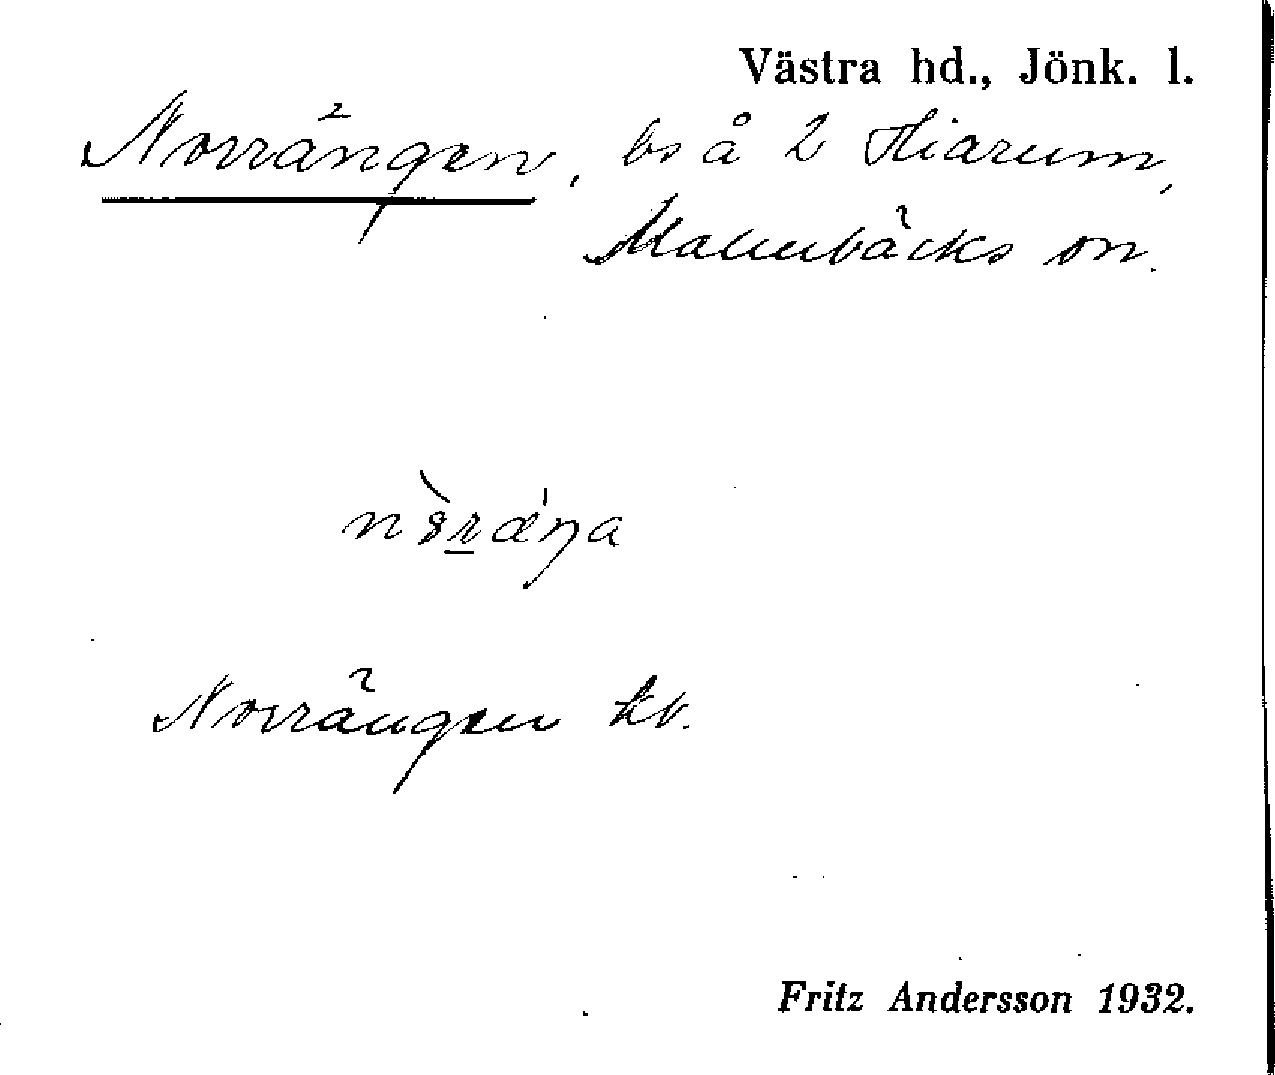 Västra hd., Jönk. l.
Norrängen, bs å 2 Hiarum,
Malmbäcks sn.
Norrängen kv.
Fritz Andersson 1932.